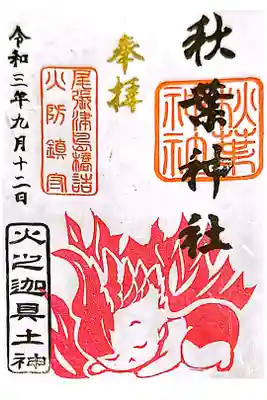 秋葉神社
秋葉神社
奉拝
尾張津島橋詰
火防鎮守
令和三年九月十二日
火之迦具土神